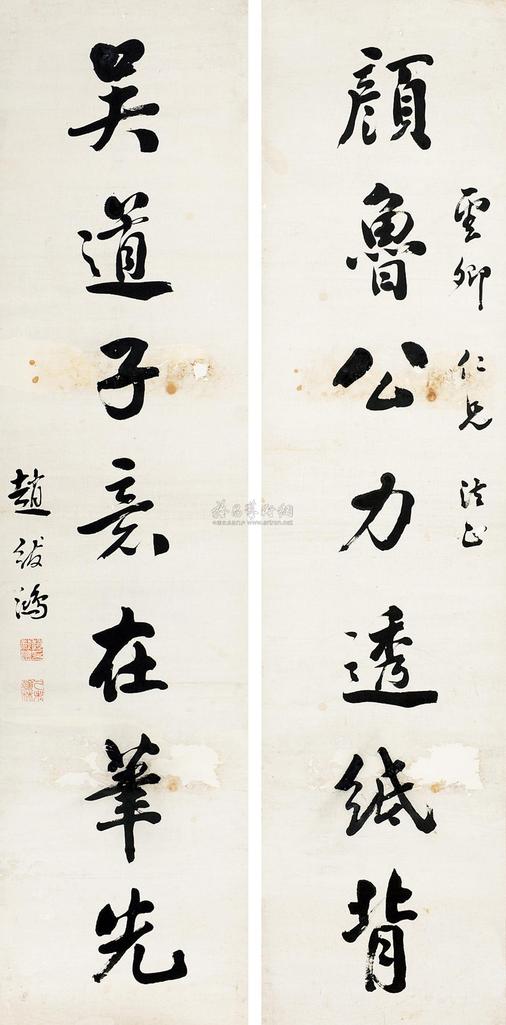 雲卿仁兄法正
顏魯公力透紙背
吴道子意在筆先
趙紱鴻